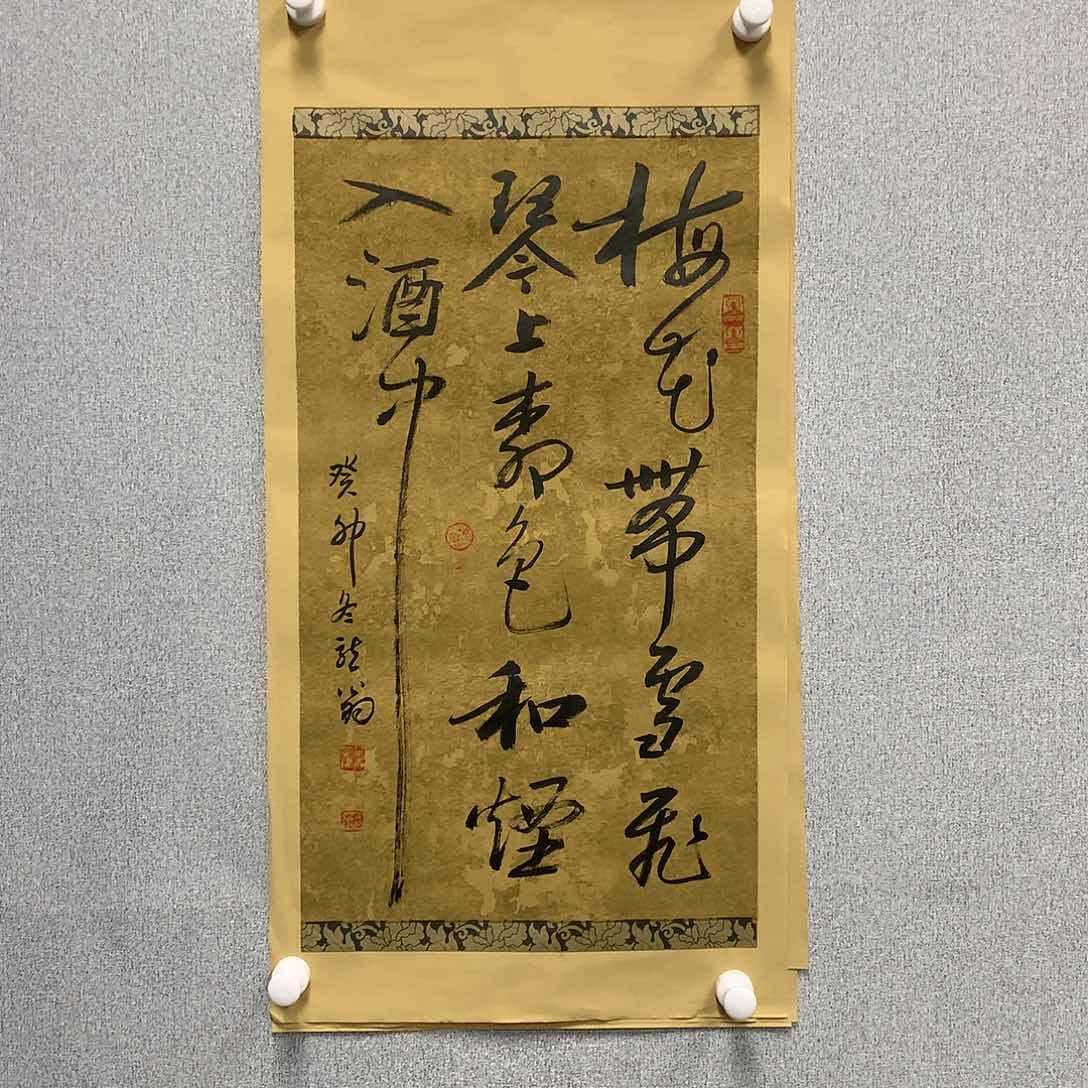 梅花帶雪飛
琴上柳色和煙
入酒中
癸卯冬龍翁